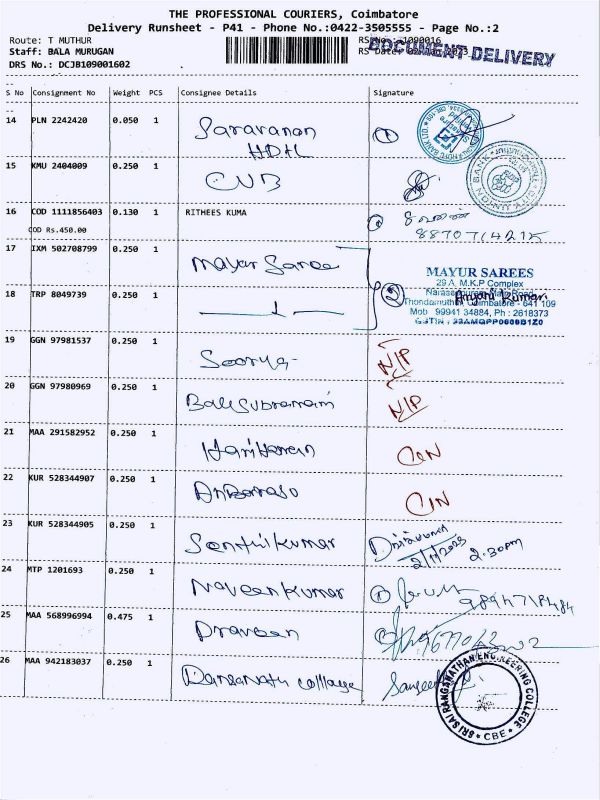 THE PROFESSIONAL COURIERS, Coimbatore
Delivery Runsheet - P41 - Phone No.:0422-3505555 - Page No.:2
Route: T MUTHUR
Staff: BALA MURUGAN
DRS No.: DCJB109001602
RS No.: 1090016
RS Date:
DOCUMENT DELIVERY
S No Consignment No Weight PCS Consignee Details Signature
14 PLN 2242420 0.050 1 Saravanan
HDFL
15 KMU 2404009 0.250 1 CUB
16 COD 1111856403 0.130 1 RITHEES KUMA
COD Rs.450.00
17 IXM 502708799 0.250 1 Mayur Saree
18 TRP 8049739 0.250 1
2
MAYUR SAREES
29 A, M.K.P Complex
Naraseepuram Main Road
Thondamuthur, Coimbatore - 641 109
Mob : 99941 34884, Ph : 2618373
19 GGN 97981537 0.250 1 Soorya N/P
20 GGN 97980969 0.250 1 Balisubramani N/P
21 MAA 291582952 0.250 1 Hariharan
22 KUR 528344907 0.250 1 Anbarasu
23 KUR 528344905 0.250 1 Senthilkumar
2.30pm
24 MTP 1201693 0.250 1 Naveenkumar
25 MAA 568996994 0.475 1 Praveen
26 MAA 942183037 0.250 1 Ranganath colllage
SRI SAI RANGANATHAN ENGINEERING COLLEGE
CBE